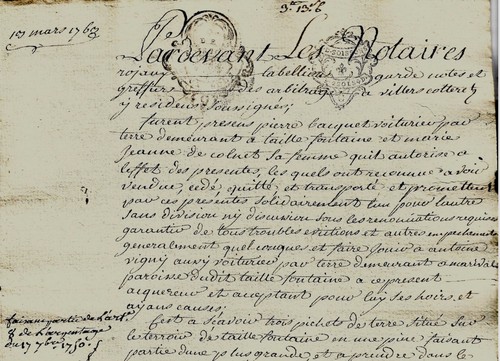 13 mars 1762
3.re 13.s 6
Pardevant Les Notaires
royaux tabellions garde notes et
greffiers des arbitrages a villers cotterets
y residens soussignés;
furent presens pierre bauquet voiturier par
terre demeurant à taille fontaine et marie
jeanne de colnet sa femme qu'il autorise a
l'effet des presentes, les quels ont reconnu avoir
vendu, cedé, quitté et transporté et promettent
par ces presentes solidairement l'un pour l'autre
sans division ny discussion sous les renonciations requises
garantir de tous troubles evictions et autres empechemens
generalement quelconques et faire jouir a antoine
vigny aussy voiturier par terre demeurant a marival
paroisse dudit taille fontaine a ce present
acquereur et acceptant pour luy ses hoirs et
ayans causes;
C'est a sçavoir trois pichets de terre situé sur
le terroir de taille fontaine en une piece faisant
partie d'une plus grande et a prendre dans le
faisant partie de l'art.
8 de l'arpentage
du 17 7bre 1750